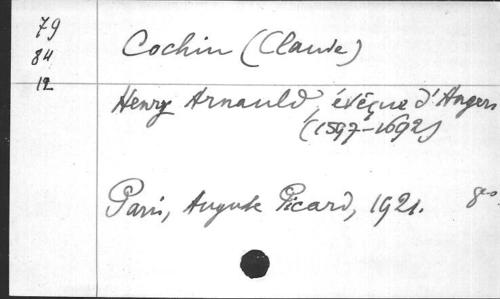 79
84
12
Cochin (Claude)
Henry Arnauld, évêque d'Angers
(1597-1692)
Paris, Auguste Picard, 1921.